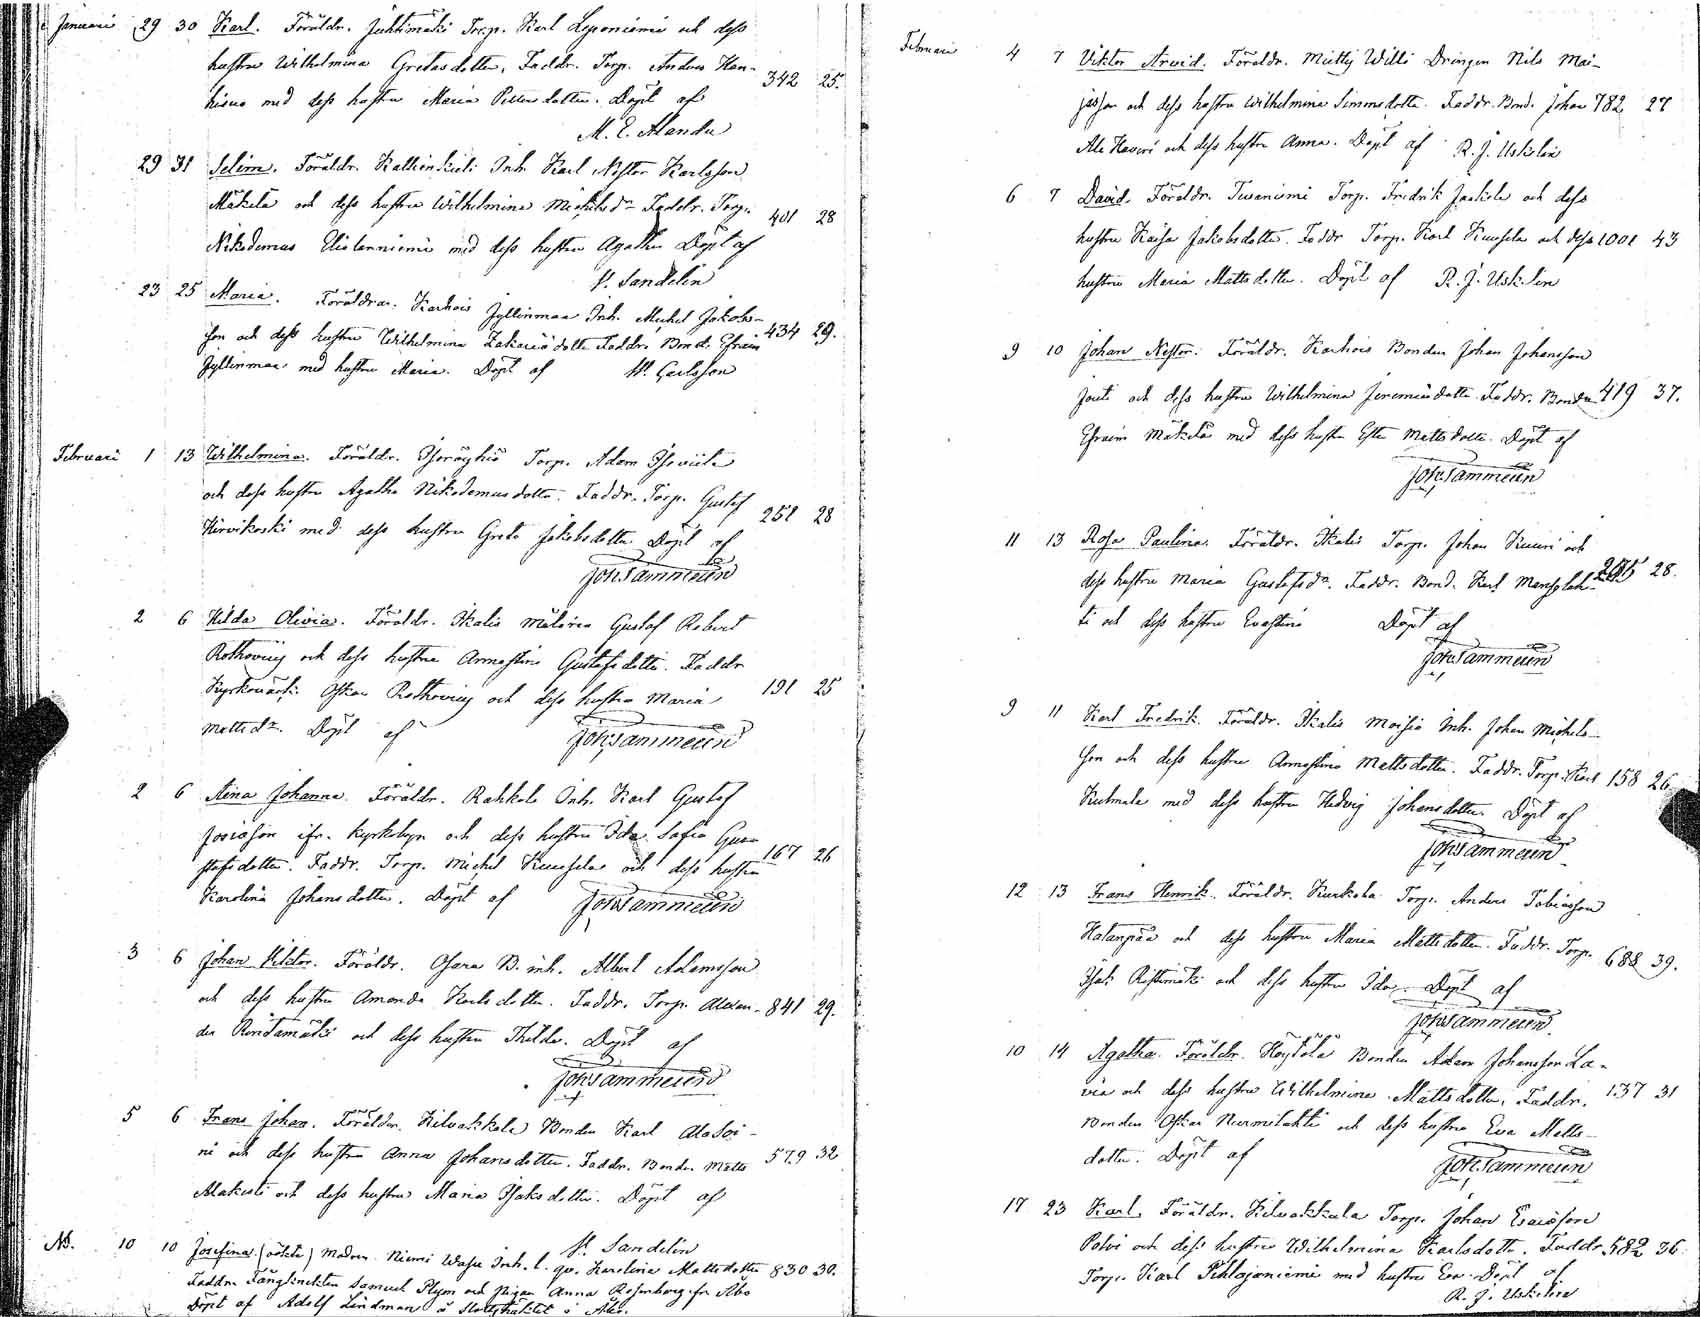 Januari 29 30 Karl. Föräldr. Juhtimäki Torp. Karl Leponiemi och dess
hustru Wilhelmina Gretasdotter, Faddr. Torp. Anders Han-
kisuo med dess hustru Maria Pettersdotter. Döpt af 342 25.
M. E. Alander
29 31 Selim. Föräldr. Inh. Karl Nestor Karlsson
Mäkelä och dess hustru Wilhelmina Michelsdr Faddr. Torp. 401 28
Nikodemus med dess hustru Agatha Döpt af
V. Sandelin
23 25 Maria. Föräldrar. Karhois Jyllinmaa Inh. Michel Jakobs-
son och dess hustru Wilhelmina Zakariedotter Faddr. Bond. Efraim 434 29.
Jyllinmaa med hustru Maria. Döpt af W. Carlsson
Februari 1 13 Wilhelmina. Föräldr. Torp. Adam
och dess hustru Agatha Nikodemusdotter. Faddr. Torp. Gustaf 251 28
Hirvikoski med dess hustru Greta Jakobsdotter. Döpt af
Joh. Tammelin
2 6 Hilda Olivia. Föräldr. Ikalis Målaren Gustaf Robert
Rothovius och dess hustru Armastina Gustafsdotter. Faddr
Kyrkovärd. Oskar Rothovius och dess hustru Maria 191 25
Mattsdr. Döpt af Joh. Tammelin
2 6 Aina Johanna. Föräldr. Rahkola Inh. Karl Gustaf
Josiasson ifr. Kyrkobyn och dess hustru Ida Sofia Gus-
stafsdotter. Faddr. Torp. Michel Kuusela och dess hustru 167 26
Karolina Johansdotter. Döpt af Joh. Tammelin
3 6 Johan Viktor. Föräldr. Osara B. inh. Albert Adamsson
och dess hustru Amanda Karlsdotter. Faddr. Torp. Alexan- 841 29.
der Rintamäki och dess hustru Thilda. Döpt af
Joh. Tammelin
5 6 Frans Johan. Föräldr. Kilvakkala Bonden Karl AlaSoi-
ni och dess hustru Anna Johansdotter. Faddr. Bonden Matts 579 32
Alakusti och dess hustru Maria Isaksdotter. Döpt af
V. Sandelin
Nb. 10 10 Josefina. (oäkta) Modren Niemi Inh. l. qv. Karolina Mattsdotter 830 30.
Faddr. Fångknekten Samuel Flyen och pigan Anna Rosenberg fr. Åbo
Döpt af Adolf Lindman å i Åbo.
Februari 4 7 Viktor Arvid. Föräldr. Miettis Willi Drängen Nils Mai-
jasson och dess hustru Wilhelmina Simonsdotter. Faddr. Bond. Johan 782 27
Ala Haveri och dess hustru Anna. Döpt af R. J. Uskelin
6 7 David. Föräldr. Tevaniemi Torp. Fredrik Jaskela och dess
hustru Kaisa Jakobsdotter. Faddr Torp. Karl Kuusela och dess 1001 43
hustru Maria Mattsdotter. Döpt af R. J. Uskelin
9 10 Johan Nestor. Föräldr. Karhois Bonden Johan Johansson
Jouti och dess hustru Wilhelmina Jeremiasdotter. Faddr. Bonden 419 37.
Efraim Mäkelä med dess hustru Ester Mattsdotter. Döpt af
Joh. Tammelin
11 13 Rosa Paulina. Föräldr. Ikalis Torp. Johan Kuuri och
dess hustru Maria Gustafsdr. Faddr. Bond. Karl Mansolah- 205 28.
ti och dess hustru Evastina Döpt af
Joh. Tammelin
9 11 Karl Fredrik. Föräldr. Ikalis Moisio Inh. Johan Michels-
son och dess hustru Armastina Mattsdotter. Faddr. Torp. Karl 158 26.
Kuhmala med dess hustru Hedvig Johansdotter. Döpt af
Joh. Tammelin
12 13 Frans Henrik. Föräldr. Kurkela Torp. Anders Tobiasson
Halanpää och dess hustru Maria Mattsdotter. Faddr. Torp. 688 39.
Isak Ristimäki och dess hustru Ida. Döpt af
Joh. Tammelin
10 14 Agatha. Föräldr. Höytölä Bonden Adam Johansson La-
via och dess hustru Wilhelmina Mattsdotter, Faddr. 137 31
Bonden Oskar Nurmilahti och dess hustru Eva Matts-
dotter. Döpt af Joh. Tammelin
17 23 Karl. Föräldr. Kilvakkala Torp. Johan Esaiasson
Polvi och dess hustru Wilhelmina Karlsdotter. Faddr. 582 36
Torp. Karl Pihlajaniemi med hustru Eva. Döpt af
R. J. Uskelin